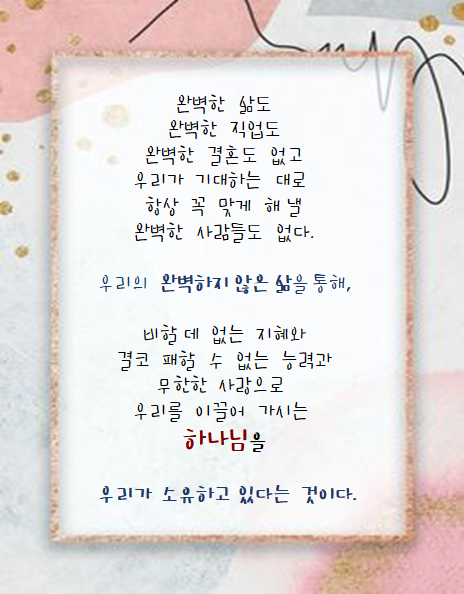 완벽한 삶도
완벽한 직업도
완벽한 결혼도 없고
우리가 기대하는 대로
항상 꼭 맞게 해 낼
완벽한 사람들도 없다.
우리의 완벽하지 않은 삶을 통해,
비할 데 없는 지혜와
결코 패할 수 없는 능력과
무한한 사랑으로
우리를 이끌어 가시는
하나님을
우리가 소유하고 있다는 것이다.